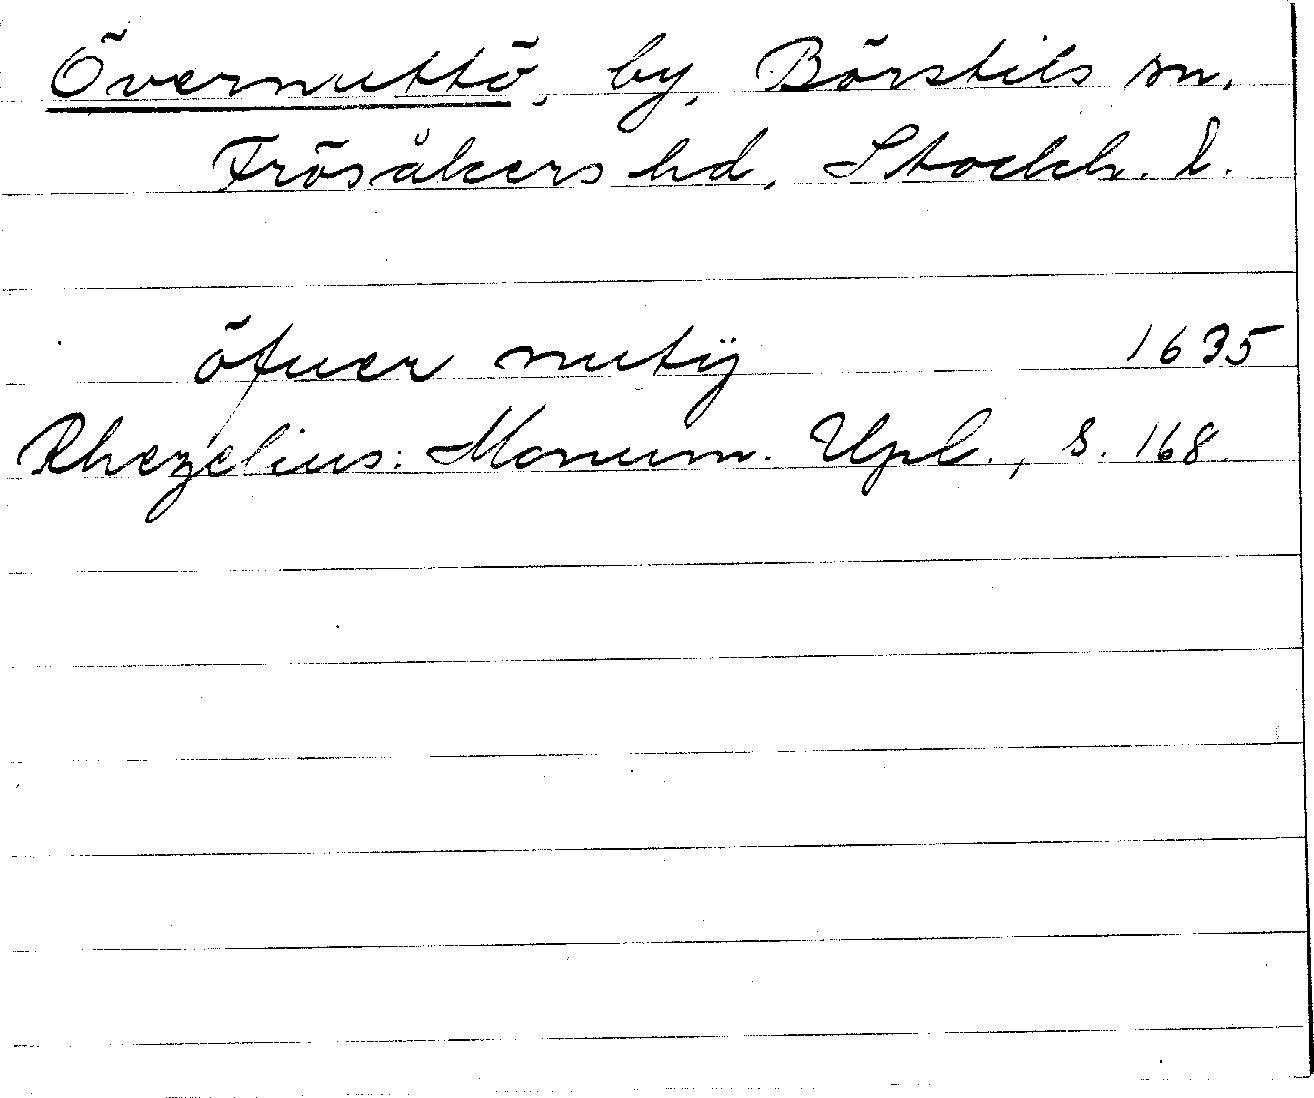 Övernuttö, by, Börstils sn.
Frösåkers hd, Stockh. l.
öfuer nutÿ 1635
Rhezelius: Monum. Upl., s. 168.